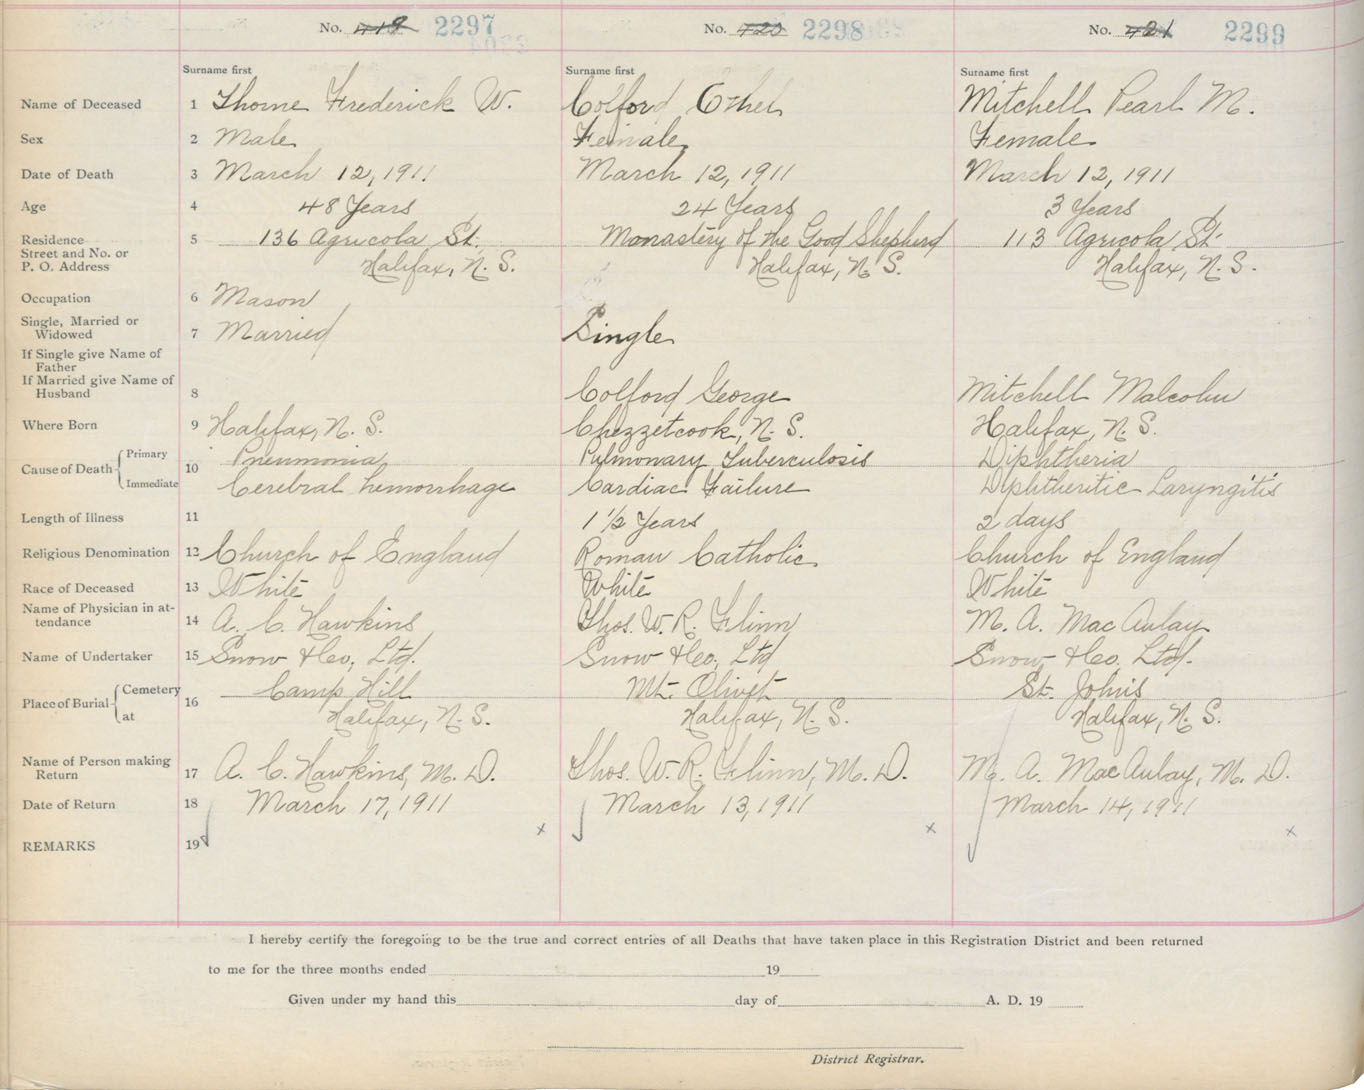 No. 419 2297 No. 420 2298 No. 421 2299
Surname first Surname first Surname first
Name of Deceased 1 Thorne Frederick W. Colford Ethel Mitchell Pearl M.
Sex 2 Male Female Female
Date of Death 3 March 12, 1911 March 12, 1911 March 12, 1911
Age 4 48 Years 24 Years 3 Years
Residence 5 136 Agricola St. Monastery of the Good Shepherd 113 Agricola St.
Street and No. or
P. O. Address Halifax, N. S. Halifax, N. S. Halifax, N. S.
Occupation 6 Mason
Single, Married or
Widowed 7 Married Single
If Single give Name of
Father
If Married give Name of
Husband 8 Colford George Mitchell Malcolm
Where Born 9 Halifax, N. S. Chezzetcook, N. S. Halifax, N. S.
Cause of Death Primary 10 Pneumonia Pulmonary Tuberculosis Diphtheria
Immediate Cerebral hemorrhage Cardiac Failure Diphtheritic Laryngitis
Length of Illness 11 1 1/2 Years 2 days
Religious Denomination 12 Church of England Roman Catholic Church of England
Race of Deceased 13 White White White
Name of Physician in at-
tendance 14 A. C. Hawkins Thos. W. R. Flinn M. A. MacAulay
Name of Undertaker 15 Snow & Co, Ltd. Snow & Co, Ltd Snow & Co. Ltd.
Place of Burial Cemetery 16 Camp Hill Mt. Olivet St. John's
at Halifax, N. S. Halifax, N. S. Halifax, N. S.
Name of Person making
Return 17 A. C. Hawkins, M. D. Thos. W. R. Flinn, M. D. M. A. MacAulay, M. D.
Date of Return 18 March 17, 1911 March 13, 1911 March 14, 1911
REMARKS 19 x x x
I hereby certify the foregoing to be the true and correct entries of all Deaths that have taken place in this Registration District and been returned
to me for the three months ended 19
Given under my hand this day of A. D. 19
District Registrar.